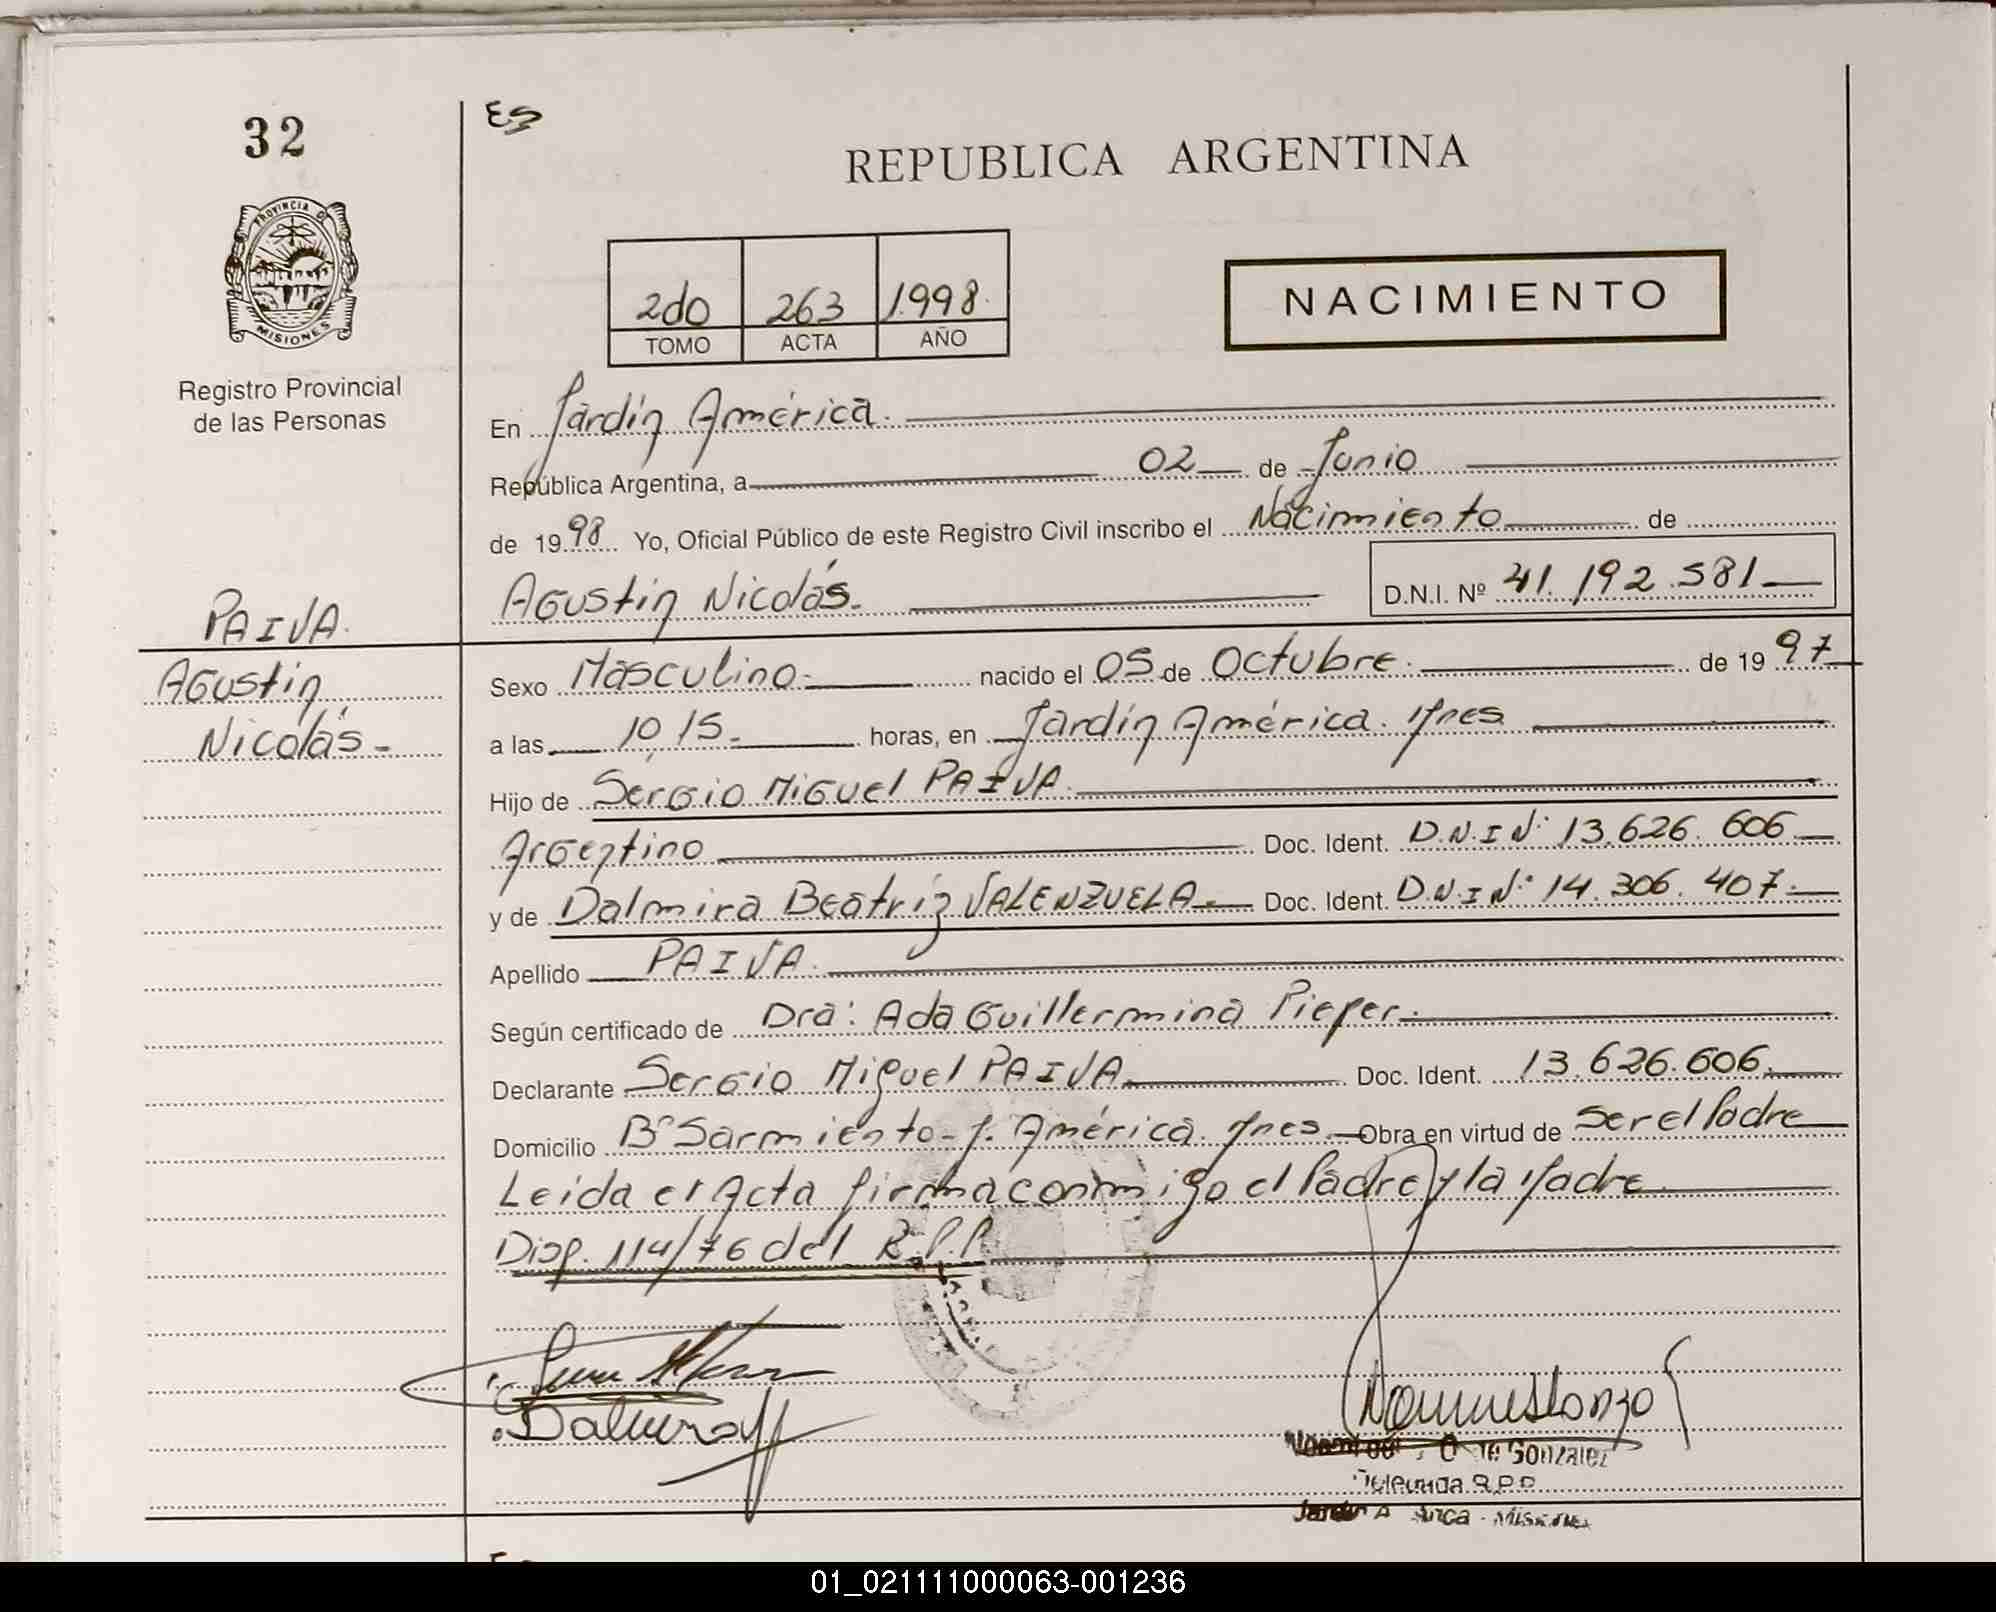 32
Es
REPUBLICA ARGENTINA
PROVINCIA DE
MISIONES
Registro Provincial
de las Personas
2do 263 1.998.
TOMO ACTA AÑO
NACIMIENTO
En Jardín América.
República Argentina, a 02 de Junio
de 1998 Yo, Oficial Público de este Registro Civil inscribo el Nacimiento de
Agustín Nicolás. D.N.I. Nº 41.192.581
PAIVA.
Agustín
Nicolás.-
Sexo Masculino.- nacido el 05 de Octubre. de 1997
a las 10,15.- horas, en Jardín América. Mnes
Hijo de Sergio Miguel PAIVA.
Argentino Doc. Ident. D.N.I Nº 13.626.606
y de Dalmira Beatríz VALENZUELA.- Doc. Ident. D.N.I Nº 14.306.407.-
Apellido PAIVA.
Según certificado de Dra: Ada Guillermina Pieper.-
Declarante Sergio Miguel PAIVA Doc. Ident. 13.626.606.
Domicilio Bº Sarmiento-J. América. Mnes.- Obra en virtud de ser el Padre
Leída el Acta firma conmigo el Padre y la Madre
Disp. 114/76 del R.P.P.
DE GONZALEZ
Delegada R.P.P.
01_021111000063-001236